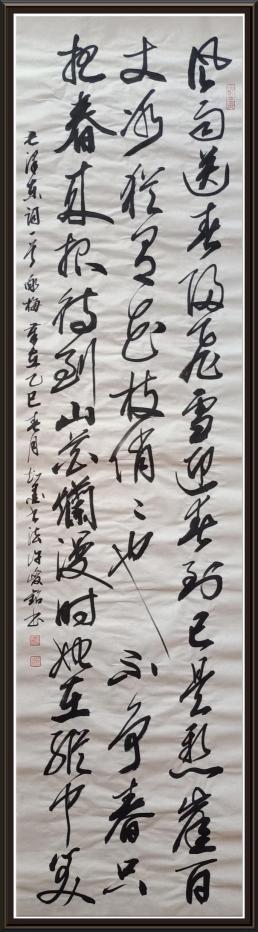 风雨送春归飞雪迎春到已是悬崖百
丈冰犹有花枝俏俏也不争春只
把春来报待到山花烂漫时她在丛中笑
毛泽东词一首咏梅岁在乙巳春月 书